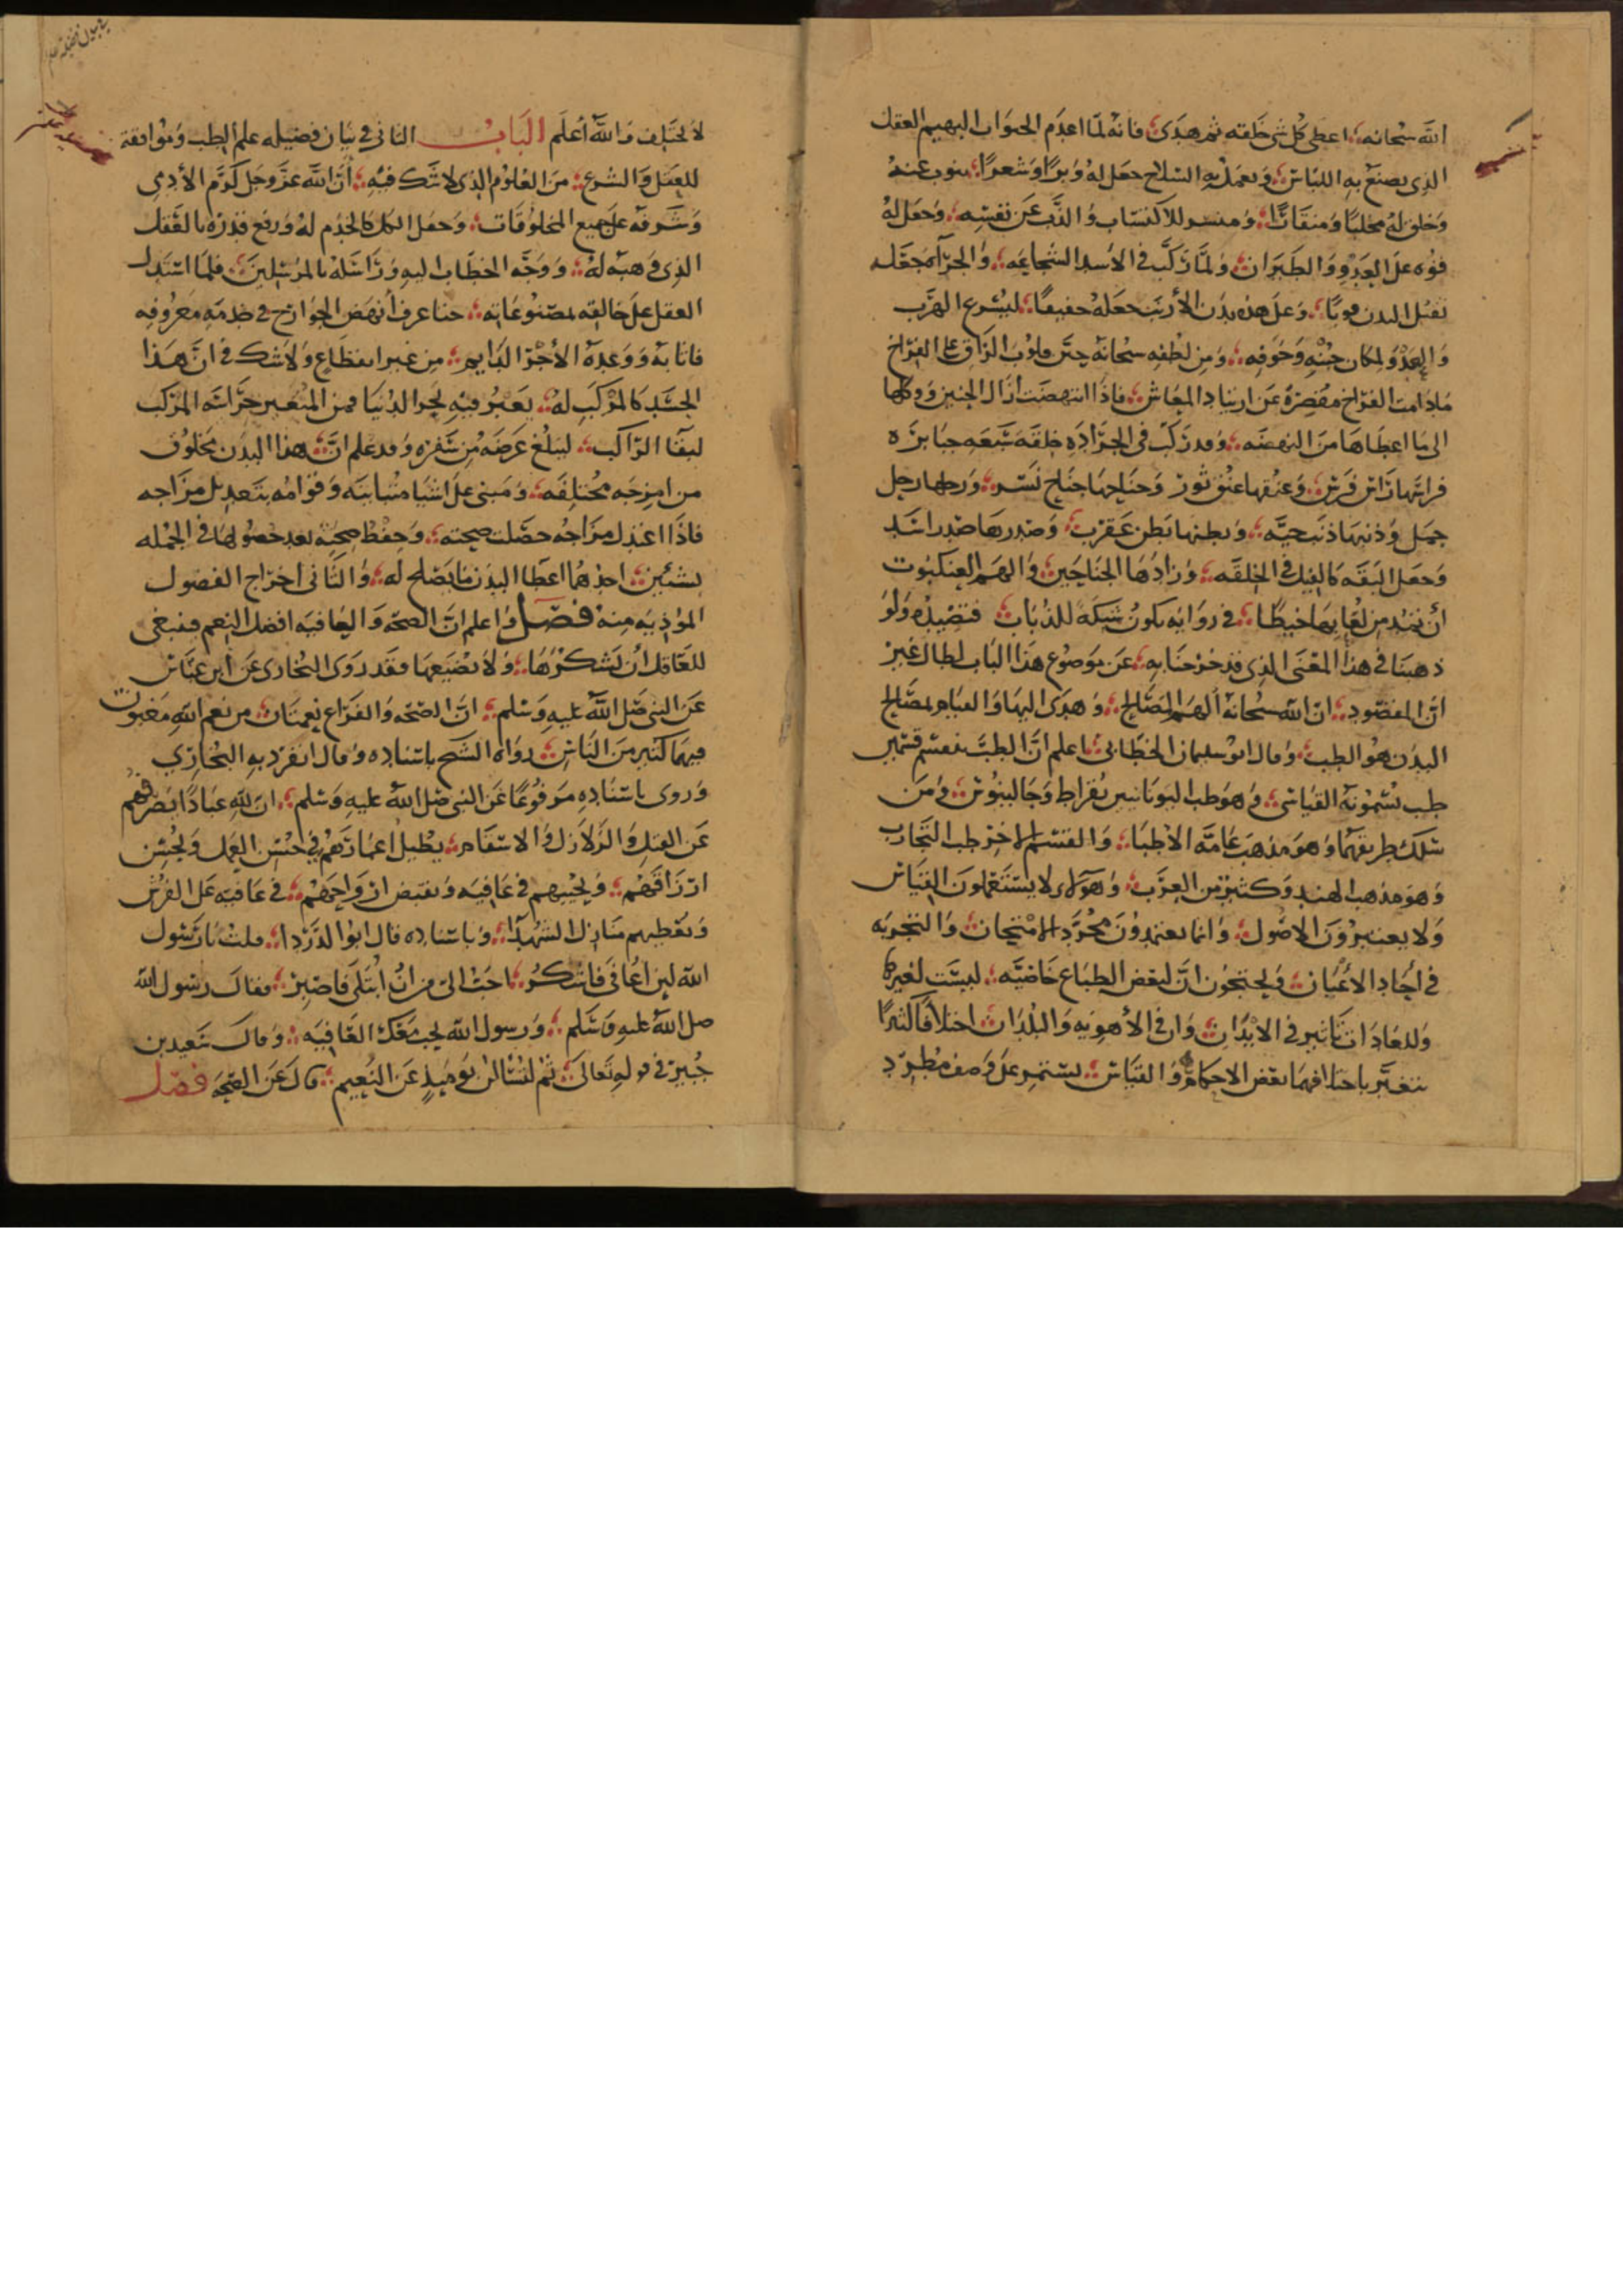 الله سبحانه اعطى كل شي خلقه ثم هدى فانه لما اعدم الحيوان البهيم العقل
الذى يصنع به اللباس وَيعمل به السلاح جعل له وبرًا وشعرًا ينوب عنه
وخلق له مخلبًا ومنقارًا للاكتساب والذب عن نفسه وجعل له
قوه على العدو والطيران ولما ركب في الأسد الشجاعه والجرآه جعل
ثقيل البدن قويًا وعلى هذه بدن الأرنب جعله خفيفًا ليشرع الهرب
والعدو لمكان جبنه وخوفه ومن لطفه سبحانه حنن قلوب الزاق على الفراخ
مادامت الفراخ مقصره عن ارتياد المعاش فاذا انتهضت ازال الحنين ووكلها
الى ما اعطاها من النهضه وقد ركب في الجراده خلقه سبعه جبابره
فراسها راس فرس وعنقها عنق ثور وجناحها جناح نسر ورجلها رجل
جمل وذنبها ذنب حيّه وبطنها بطن عقرب وصدرها صدر اسد
وجعل البقه كالفيل في الخلقه وزادها الجناحين والهم العنكبوت
أن تمد من لعابها خيطا في زوايه يكون شبكة للذباب فتصيده ولو
ذهبنا في هذا المعنى الذى قد خرجنا به عن موضوع هذا الباب لطال غير
ان المقصود ان الله سبحانه ألهم المصالح وهدى اليها والقيام بمصالح
البدن هو الطب وقال ابو سليمان الخطابى اعلم ان الطب ينقسم قسمين
طب يسمونه القياسى وهو طب اليونانيين بقراط وجالينوس ومن
سلك طريقهما وهو مذهب عامة الاطبا والقسم الاخر طب التجارب
وهو مذهب الهند وكثير من العرب وهولاى لا يستعملون القياس
ولا يعتبرون الاصول وانما يعتمدون مجرد الامتحان والتجربه
في أحاد الأعيان ويحتجون ان لبعض الطباع خاصيّه ليست لغيرها
وللعادات تاثير في الابدان وان في الأهويه والبلدان اختلافا كثيرًا
يتغير باختلافهما بعض الاحكام والقياس يستمر على وصف مطرد
لا يختلف والله أعلم البَابُ الثانى في بيان فضيله علم الطب وموافقة
للعقل والشرع من العلوم الذى لا شك فيه أن الله عز وجل كرّم الأدمى
وشرفه على جميع المخلوقات وجعل الكل كالخدم له ورفع قدره بالعقل
الذى وهبه له ووجّه الخطاب اليه وراسله بالمرسلين فلما استدل
العقل على خالقه بمصنوعاته عرف أنهض الجوارح في خدمه معروفه
فاثابه ووعده الأجر الدايم من غير انقطاع ولا شك في ان هذا
الجسد كالمركب له يعبر فيه بحر الدنيا فمن المتعين حراسة المركب
لبقا الراكب ليبلغ غرضه من سفره وقد علم ان هذا البدن مخلوق
من امزجه مختلفه ومبنى على اشيا متباينه وقوامه بتعديل مزاجه
فاذا اعتدل مزاجه حصلت صحته وحفظ صحته بعد حصولها في الجمله
بشيئين احدهما اعطا البدن ما يصلح له والثانى اخراج الفضول
المؤذيه منه فصل واعلم ان الصحه والعافيه افضل النعم فينبغى
للعاقل ان يشكرها ولا يضيعها فقد روى البخارى عن ابن عباس
عن النبى صلى الله عليه وسلم ان الصحه والفراغ نعمتان من نعم الله مغبون
فيهما كثير من الناس رواه الشيخ باسناده وقال انفرد به البخارى
وروى باسناده مرفوعًا عن النبى صلى الله عليه وسلم ان لله عبادًا
عن القتل والزلازل والاسقام يطيل اعمارهم في حسن العمل ويحسن
ارزاقهم ويحييهم في عافيه ويقبض ارواحهم في عافيه على الفرش
ويعطيهم منازل الشهدا وباسناده قال ابوا الدردا قلت يا رسول
الله لين اعافى فاشكر احب الى من ان ابتلى فاصبر فقال رسول الله
صلى الله عليه وسلم ورسول الله يحب معك العافيه وقال سعيد بن
جبير في قوله تعالى ثم لتسالن يوميذٍ عن النعيم قال عن الصحه فصل